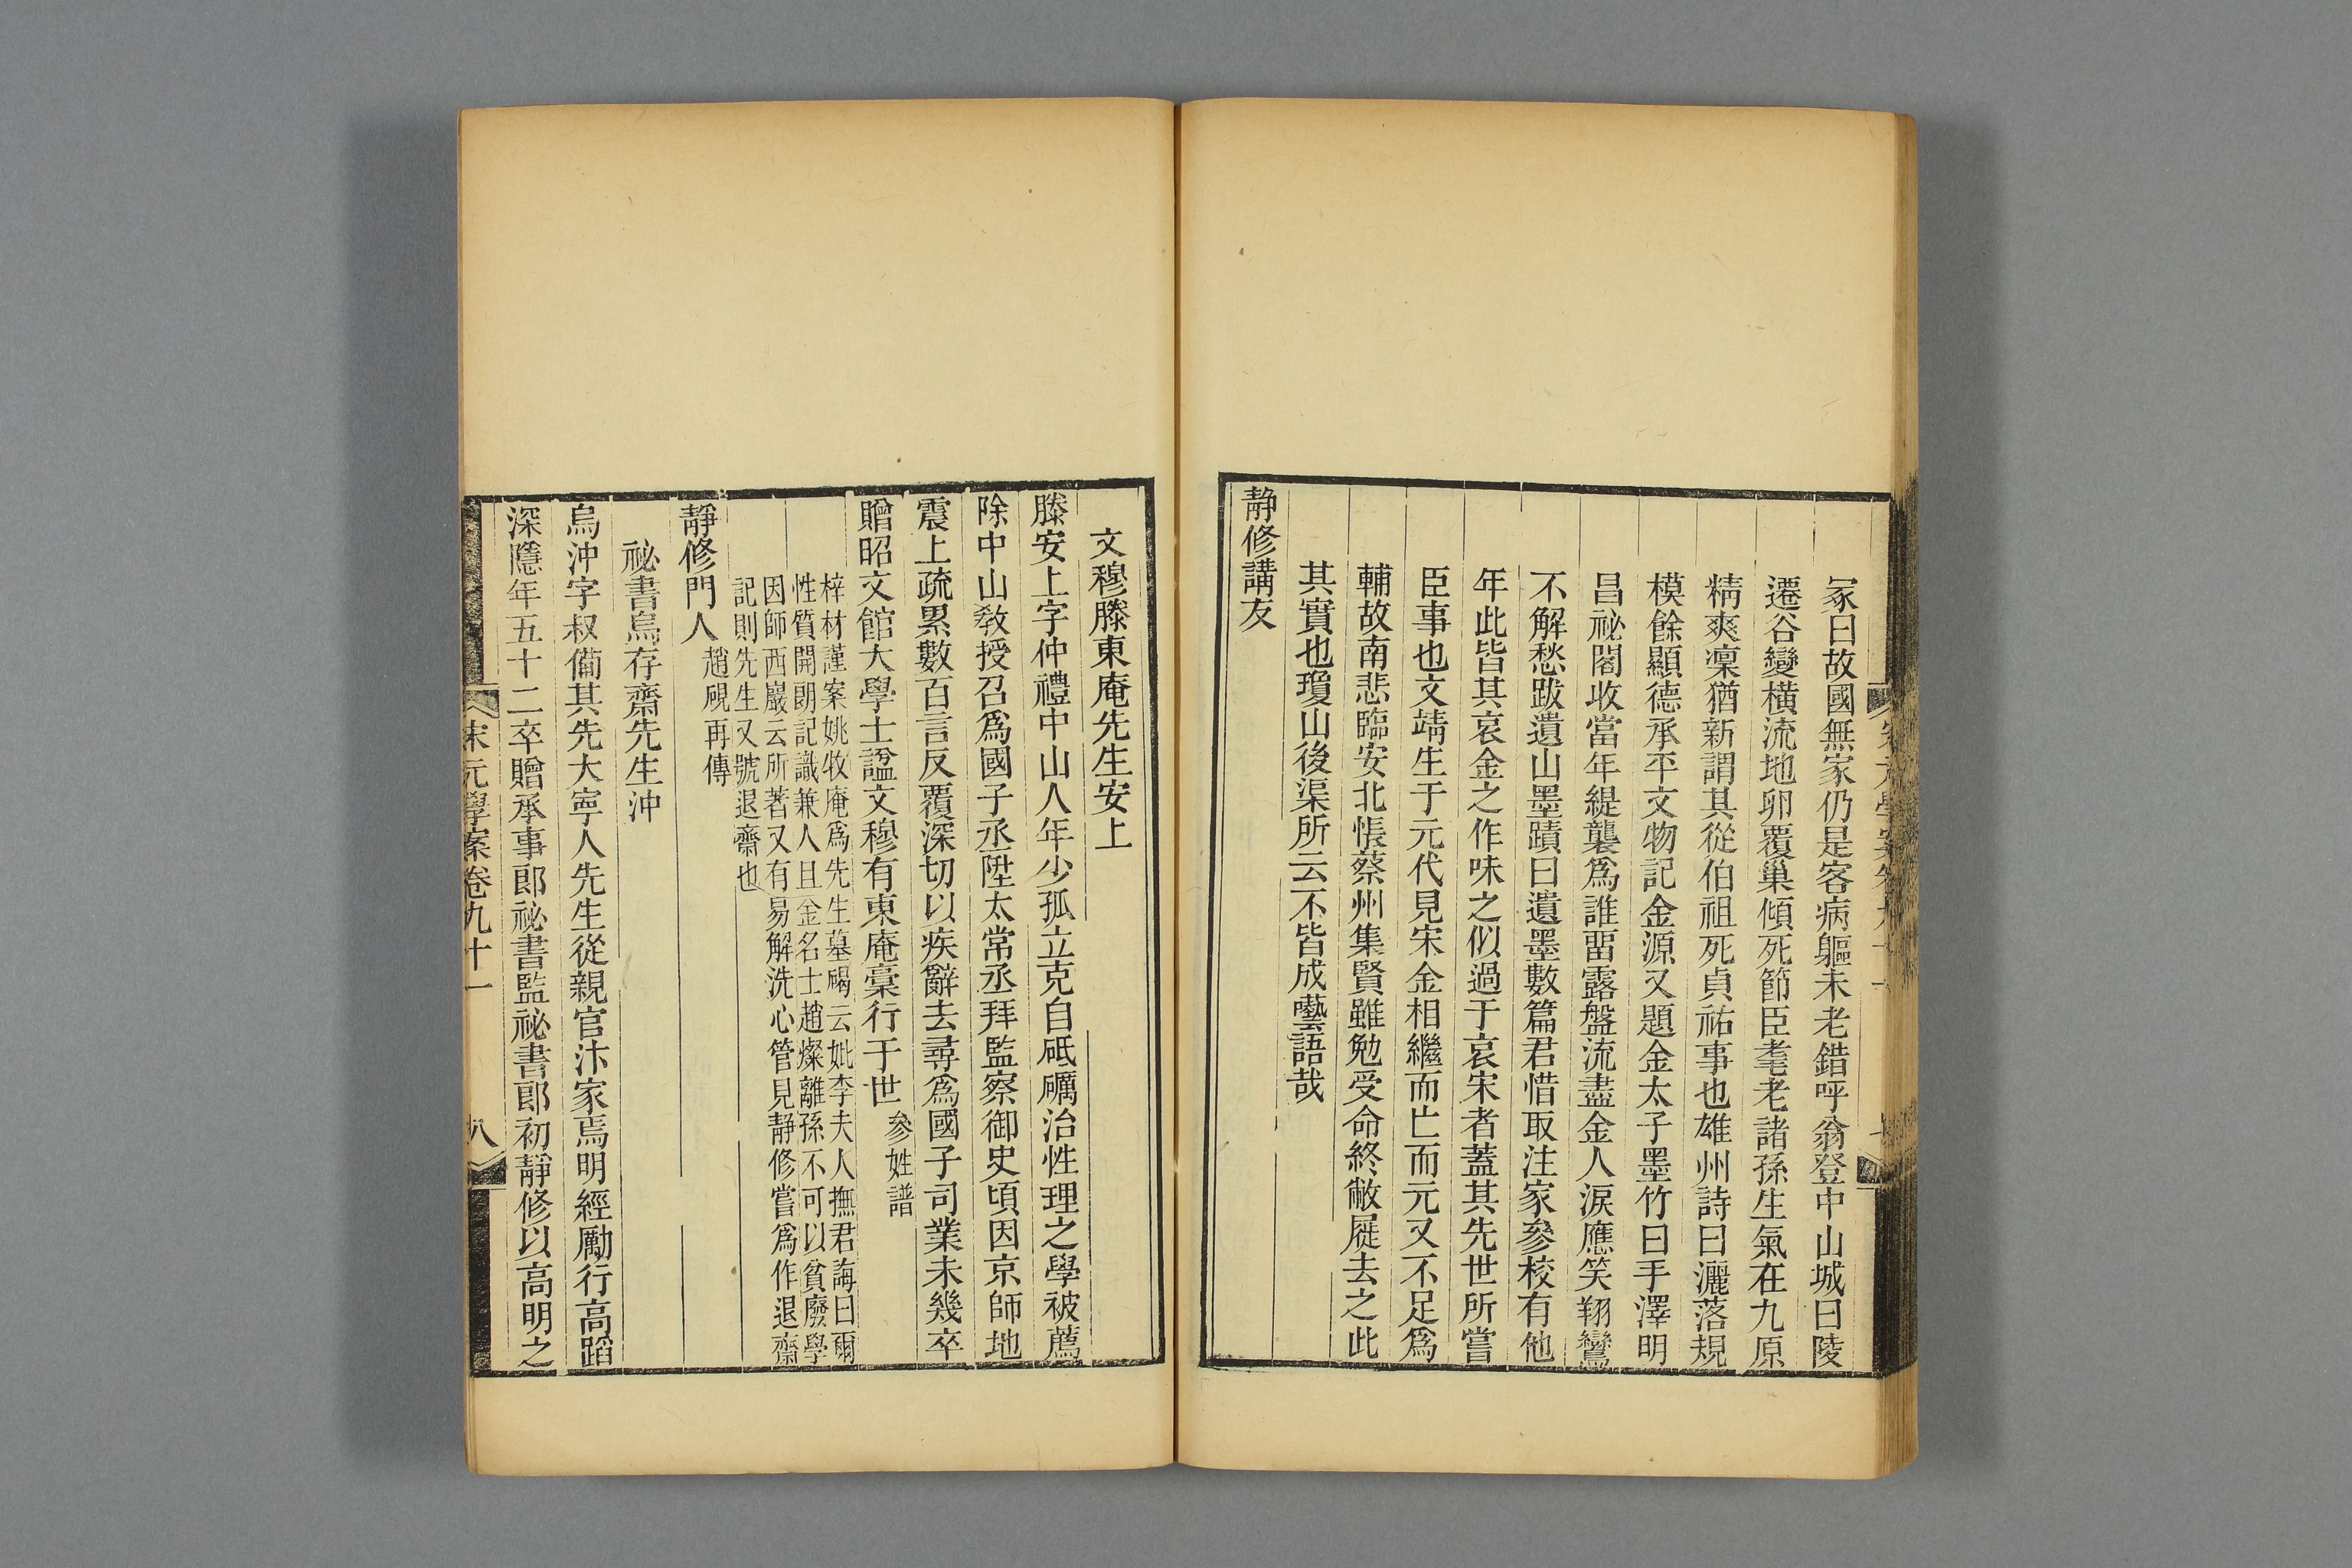 冢曰故國無家仍是客病軀未老錯呼翁登中山城曰陵
遷谷變橫流地卵覆巢傾死節臣耄老諸孫生氣在九原
精爽凜猶新謂其從伯祖死貞祐事也雄州詩曰灑落規
模餘顯德承平文物記金源又題金太子墨竹曰手澤明
昌祕閣收當年緹襲爲誰畱露盤流盡金人淚應笑翔鸞
不解愁跋遺山墨蹟曰遺墨數篇君惜取注家參校有他
年此皆其哀金之作味之似過于哀宋者蓋其先世所嘗
臣事也文靖生于元代見宋金相繼而亡而元又不足爲
輔故南悲臨安北悵蔡州集賢雖勉受命終敝屣去之此
其實也瓊山後渠所云不皆成囈語哉
靜修講友
文穆滕東庵先生安上
滕安上字仲禮中山人年少孤立克自砥礪治性理之學被薦
除中山敎授召爲國子丞陞太常丞拜監察御史頃因京師地
震上疏累數百言反覆深切以疾辭去尋爲國子司業未幾卒
贈昭文館大學士諡文穆有東庵稾行于世參姓譜
梓材謹案姚牧庵爲先生墓碣云妣李夫人撫君誨曰爾
性質開朗記識兼人且金名士趙燦離孫不可以貧廢學
因師西巖云所著又有易解洗心管見靜修嘗爲作退齋
記則先生又號退齋也
靜修門人趙硯再傳
祕書烏存齋先生沖
烏沖字叔備其先大寧人先生從親官汴家焉明經勵行高蹈
深隱年五十二卒贈承事郎祕書監祕書郎初靜修以高明之
宋元學案卷九十一
八